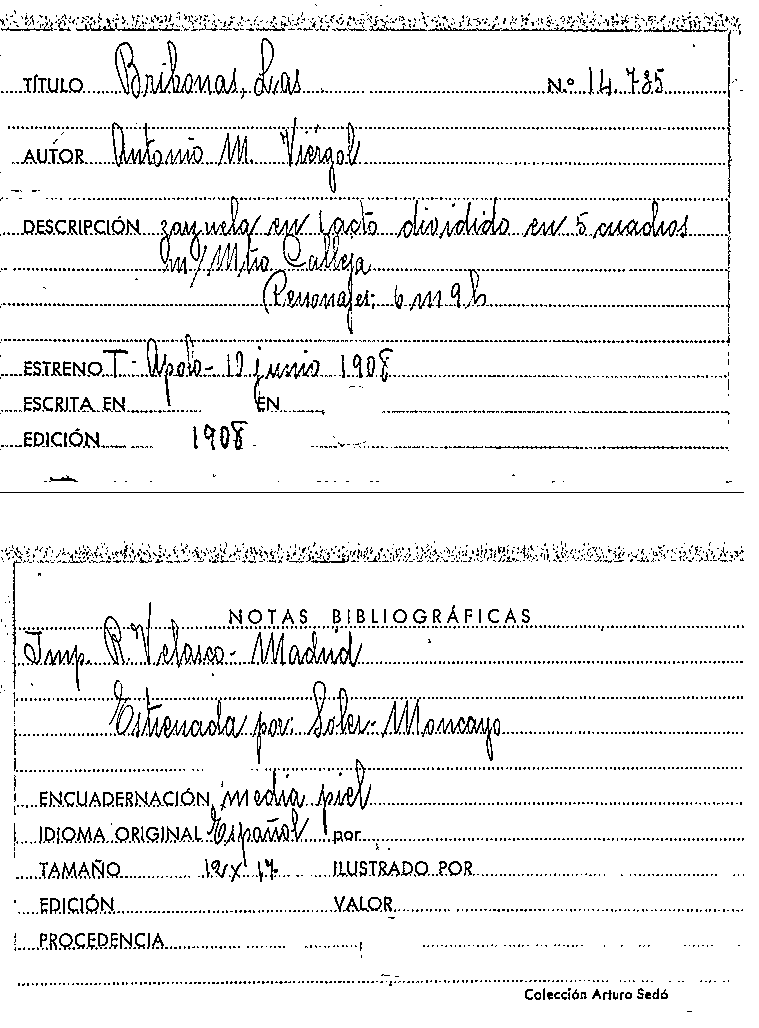 TÍTULO Bribonas, Las N.º 14.785
AUTOR Antonio M. Viérgol
DESCRIPCIÓN zarzuela en 1 acto dividido en 5 cuadros
m/ Mtro Calleja
Personajes: 6 m 9 h
ESTRENO T- Apolo- 10 junio 1908
ESCRITA EN EN
EDICIÓN 1908
NOTAS BIBLIOGRÁFICAS
Imp. R. Velasco- Madrid
Estrenada por: Soler- Moncayo
ENCUADERNACIÓN media piel
IDIOMA ORIGINAL Español por
TAMAÑO 12 x 17 ILUSTRADO POR
EDICIÓN VALOR
PROCEDENCIA
Colección Arturo Sedó